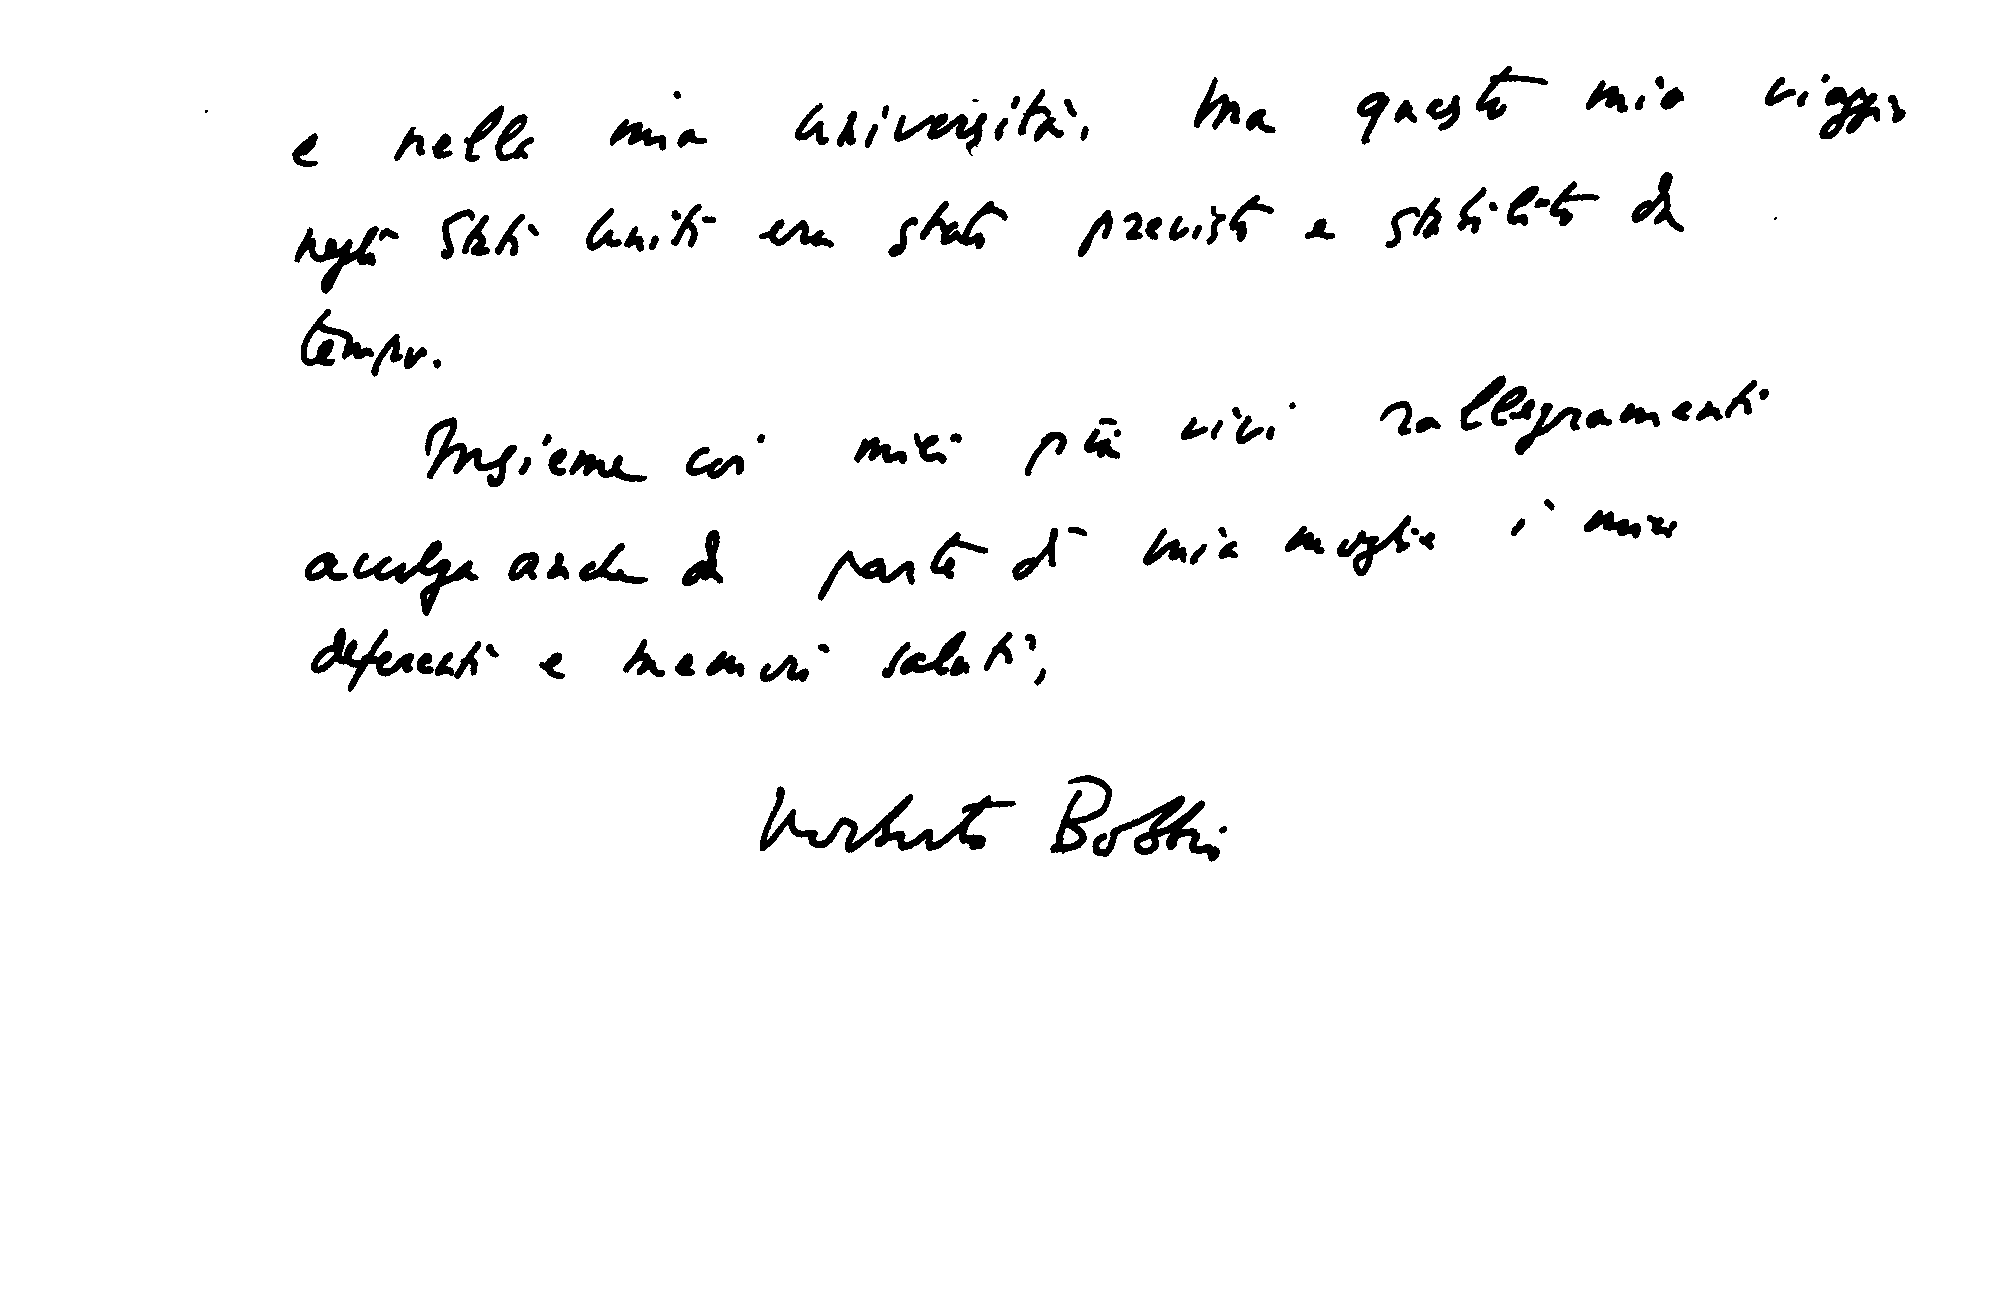 e nella mia università. Ma questo mio viaggio
negli Stati Uniti era stato previsto e stabilito da
tempo.
Insieme coi miei più vivi rallegramenti
accolga anche da parte di mia moglie i miei
deferenti e memori saluti,
Norberto Bobbio